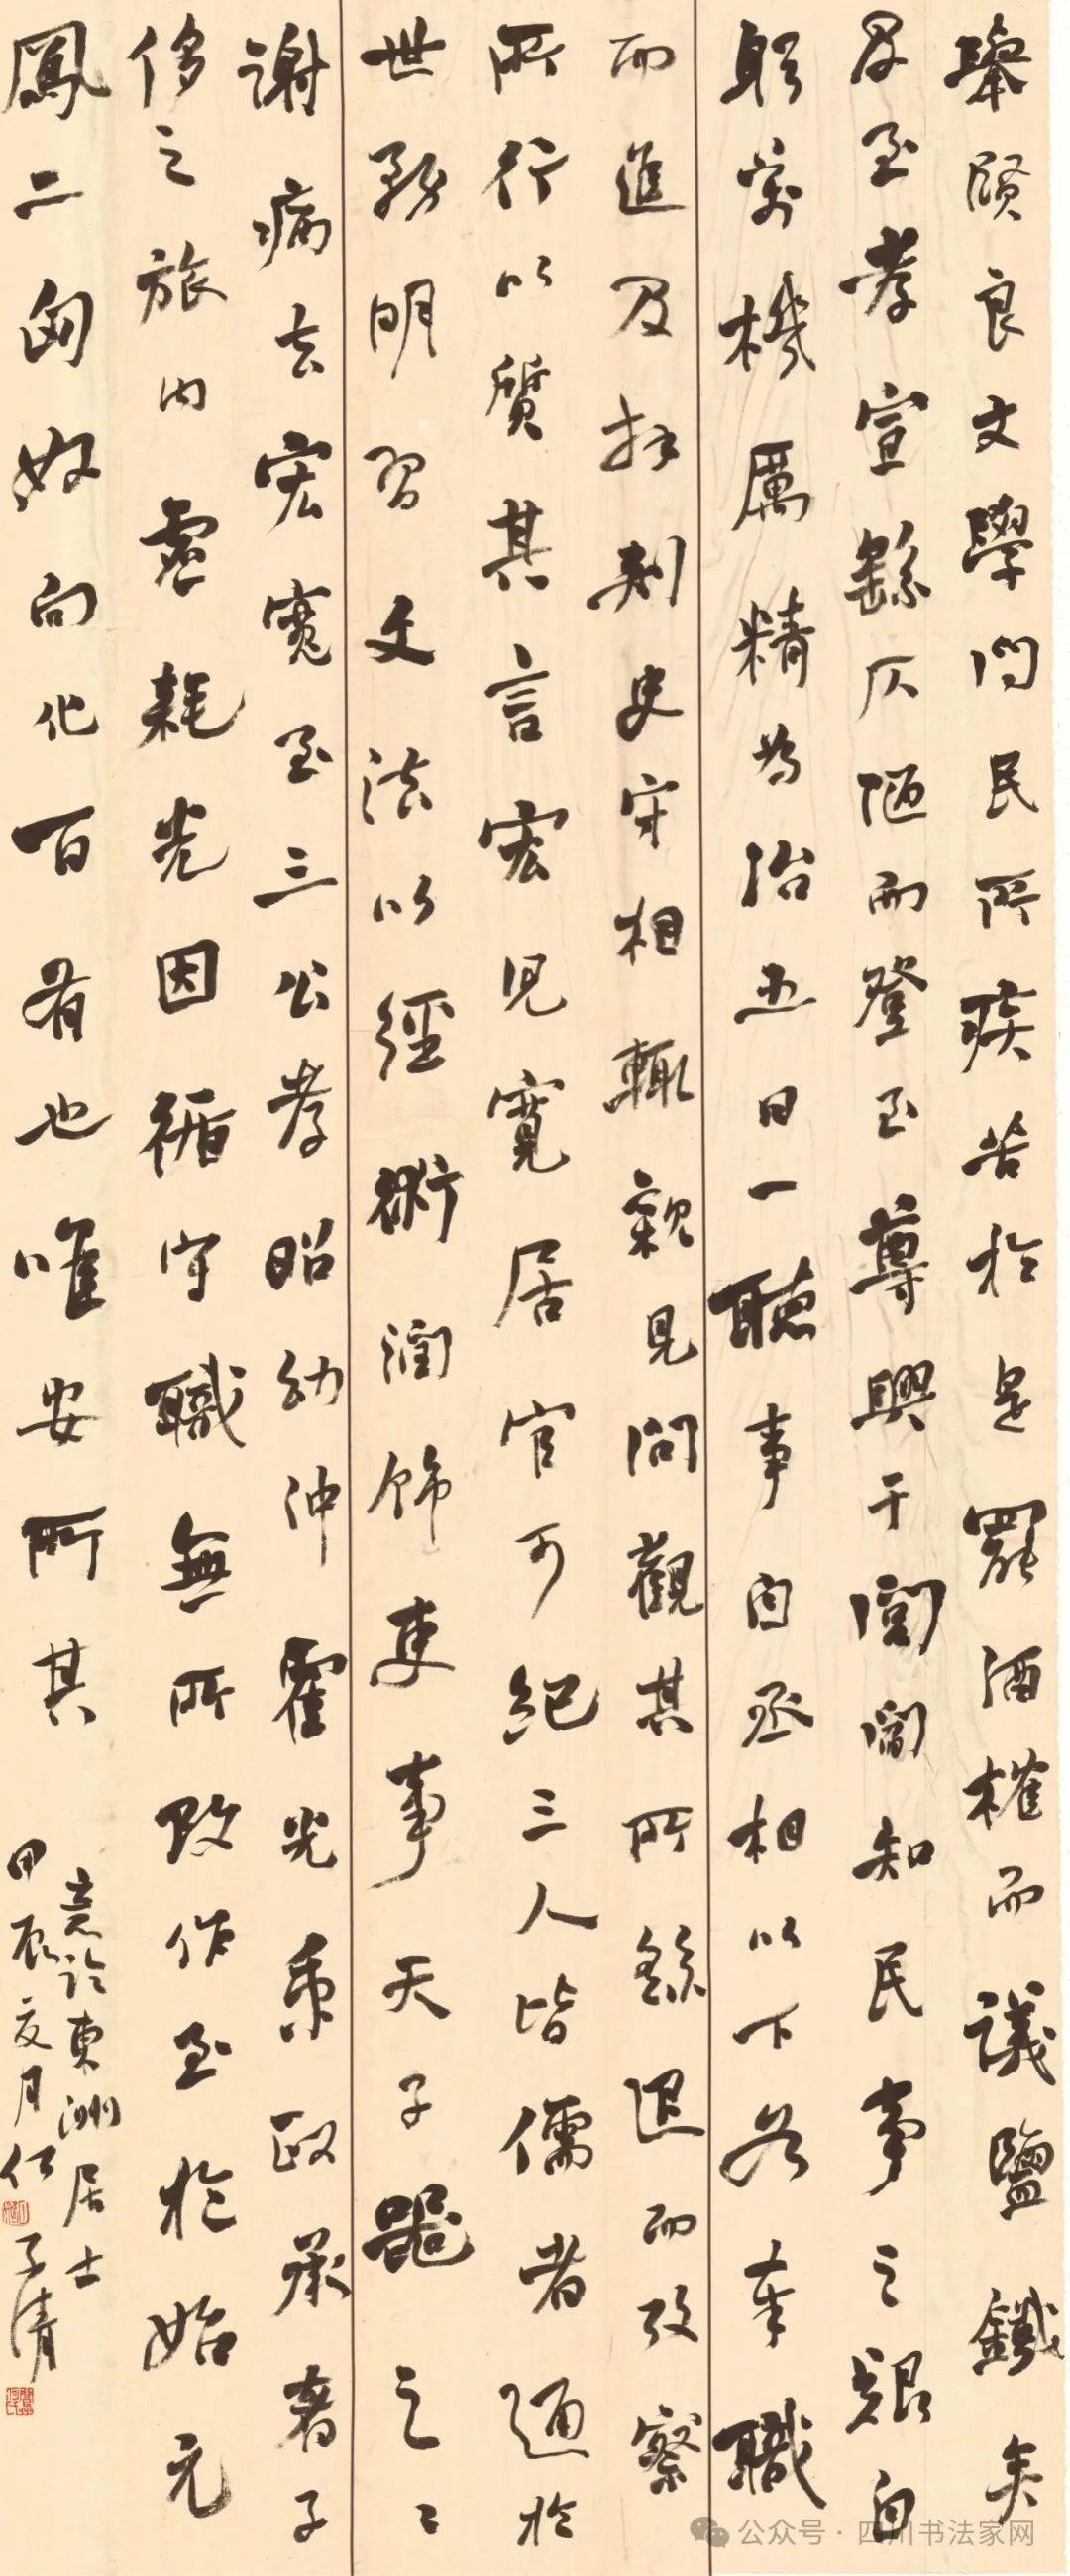 舉賢良文學問民所疾苦於是罷酒榷而議鹽鐵矣
及至孝宣繇仄陋而登至尊興于閭閻知民事之艱自
躬萬機厲精為治五日一聽事自丞相以下各奉職
而進及拜刺史守相輒親見問觀其所繇退而攷察
所行以質其言宏兒寬居官可紀三人皆儒者通於
世務明習文法以經術潤飾吏事天子器之〻
謝病去宏寬至三公孝昭幼沖霍光秉政承奢子
侈之旅內虛耗光因循守職無所改作至於始元
鳳二匈奴向化百有也唯安所其
東洲居士
甲辰夏月 子清
公众号 · 四川书法家网